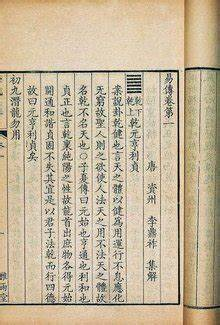 易傳卷第一
唐 資州 李鼎祚 集解
䷀ 乾下乾上 乾元亨利貞
案說卦乾健也言天之體以健為用運行不息應化
无窮故聖人則之欲使人法天之用不法天之體故
名乾不名天也○子夏傳曰元始也亨通也利和也
貞正也言乾稟純陽之性故能首出庶物各得元始
開通和諧貞固不失其宜是以君子法乾而行四德
故曰元亨利貞矣
初九潛龍勿用
雅雨堂